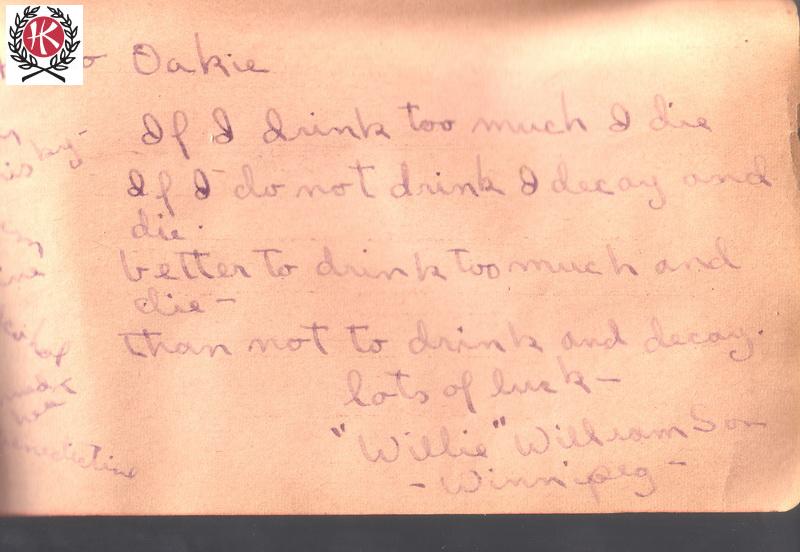 HK
Oakie
If I drink too much I die
If I do not drink I decay and
die.
better to drink too much and
die -
than not to drink and decay.
lots of luck -
"Willie" Williamson
- Winnipeg -
benedictine